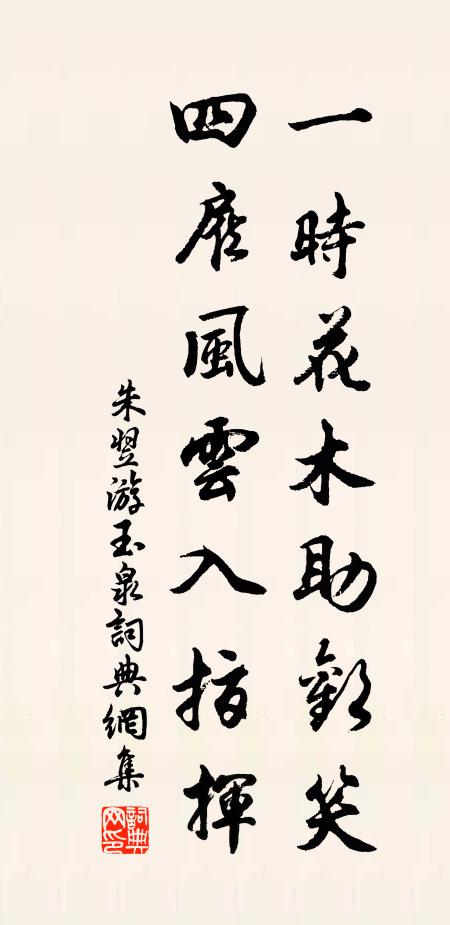 一時花木助歡笑
四座風雲入指揮
朱翌游玉泉詞典網集
詞典网印